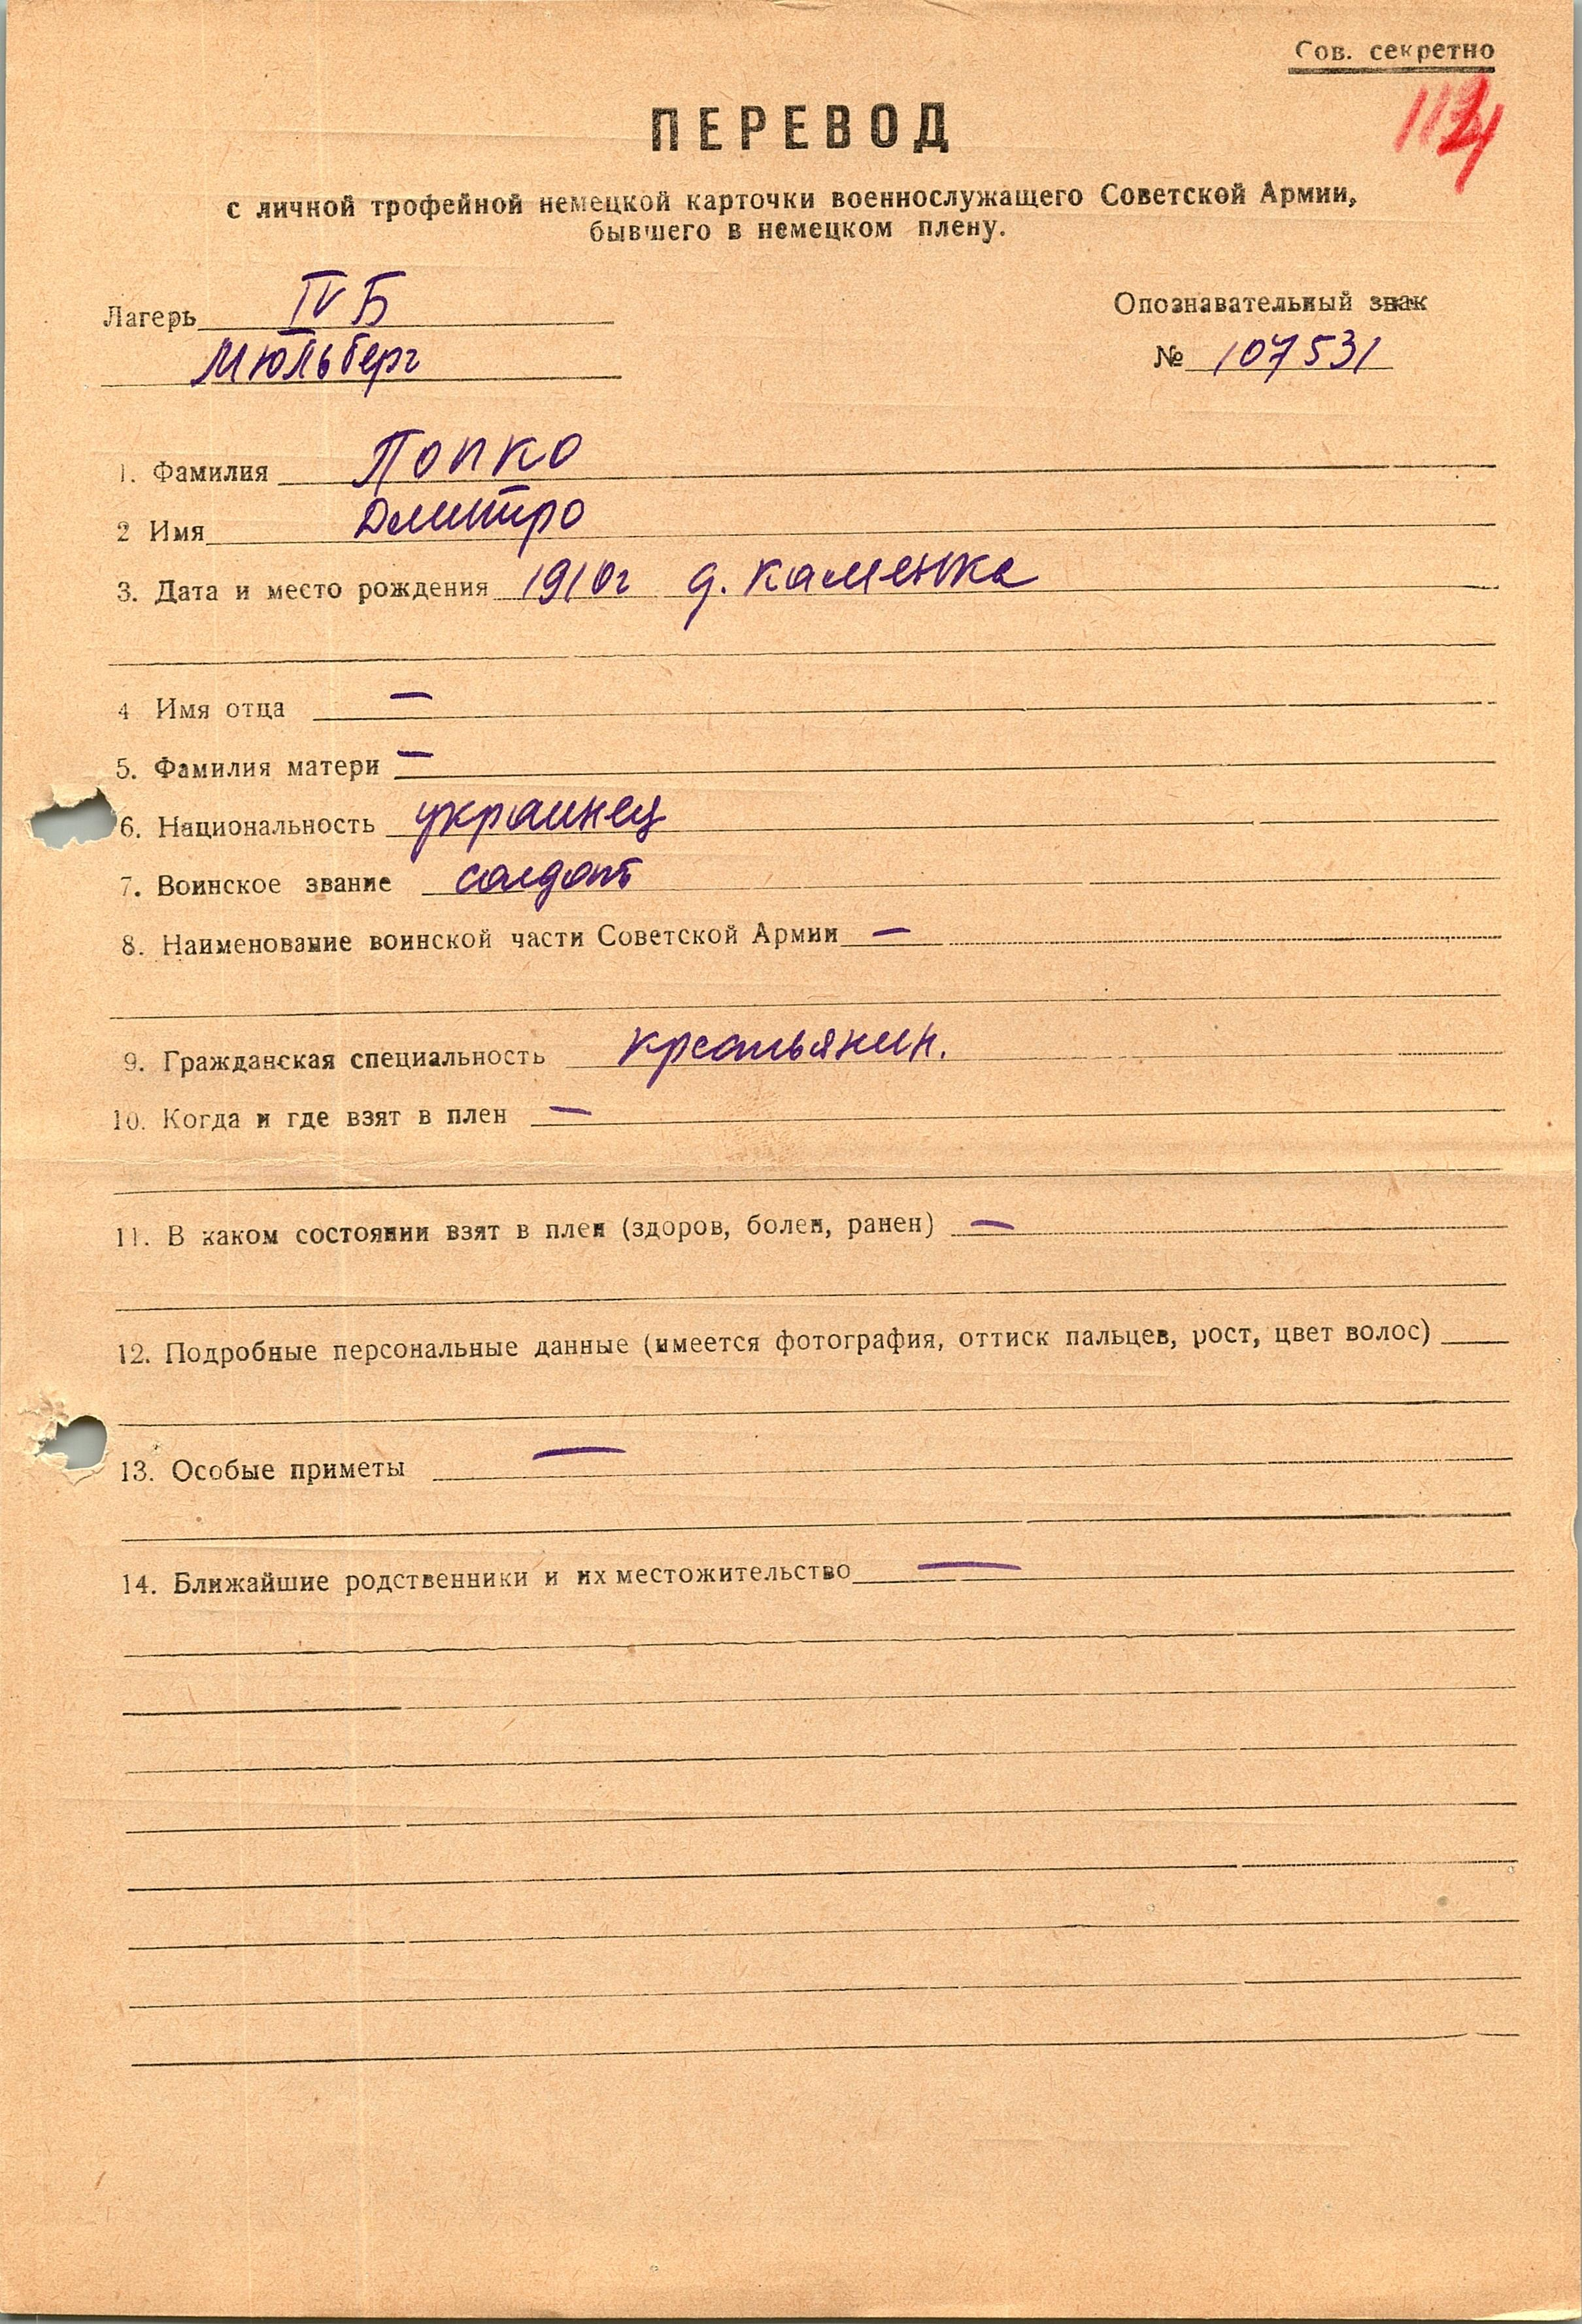 Сов. секретно
ПЕРЕВОД
с личной трофейной немецкой карточки военнослужащего Советской Армии,
бывшего в немецком плену.
Лагерь IV Б
Мюльберг
Опознавательный знак
№ 107531
1. Фамилия Попко
2 Имя Дмитро
3. Дата и место рождения 1910г д. Каменка
4 Имя отца —
5. Фамилия матери —
6. Национальность украинец
7. Воинское звание солдат
8. Наименование воинской части Советской Армии —
9. Гражданская специальность крестьянин.
10. Когда и где взят в плен —
11. В каком состоянии взят в плен (здоров, болен, ранен) —
12. Подробные персональные данные (имеется фотография, оттиск пальцев, рост, цвет волос)
13. Особые приметы —
14. Ближайшие родственники и их местожительство —